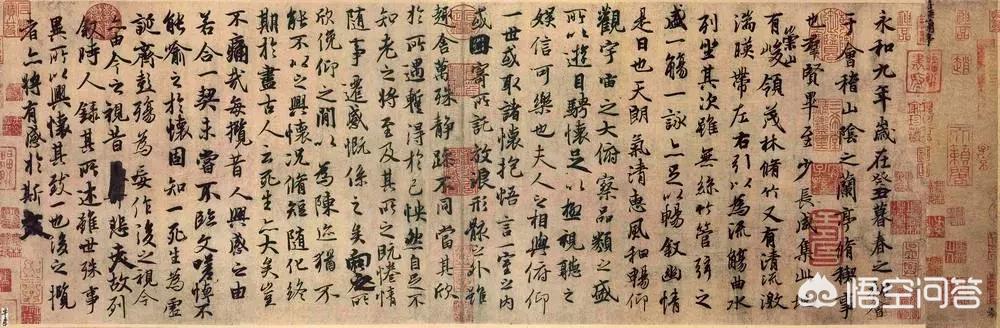 永和九年歲在癸丑暮春之初會
于會稽山陰之蘭亭脩稧事
也群賢畢至少長咸集此地
有崇山峻領茂林脩竹又有清流激
湍暎帶左右引以為流觴曲水
列坐其次雖無絲竹管弦之
盛一觴一詠亦足以暢敘幽情
是日也天朗氣清惠風和暢仰
觀宇宙之大俯察品類之盛
所以遊目騁懷足以極視聽之
娛信可樂也夫人之相與俯仰
一世或取諸懷抱悟言一室之內
或因寄所託放浪形骸之外雖
趣舍萬殊靜躁不同當其欣
於所遇蹔得於己怏然自足不
知老之將至及其所之既惓情
隨事遷感慨係之矣向之所
欣俛仰之間以為陳迹猶不
能不以之興懷況脩短隨化終
期於盡古人云死生亦大矣豈
不痛哉每攬昔人興感之由
若合一契未嘗不臨文嗟悼不
能喻之於懷固知一死生為虛
誕齊彭殤為妄作後之視今
亦由今之視昔悲夫故列
敘時人錄其所述雖世殊事
異所以興懷其致一也後之攬
者亦將有感於斯文
悟空问答